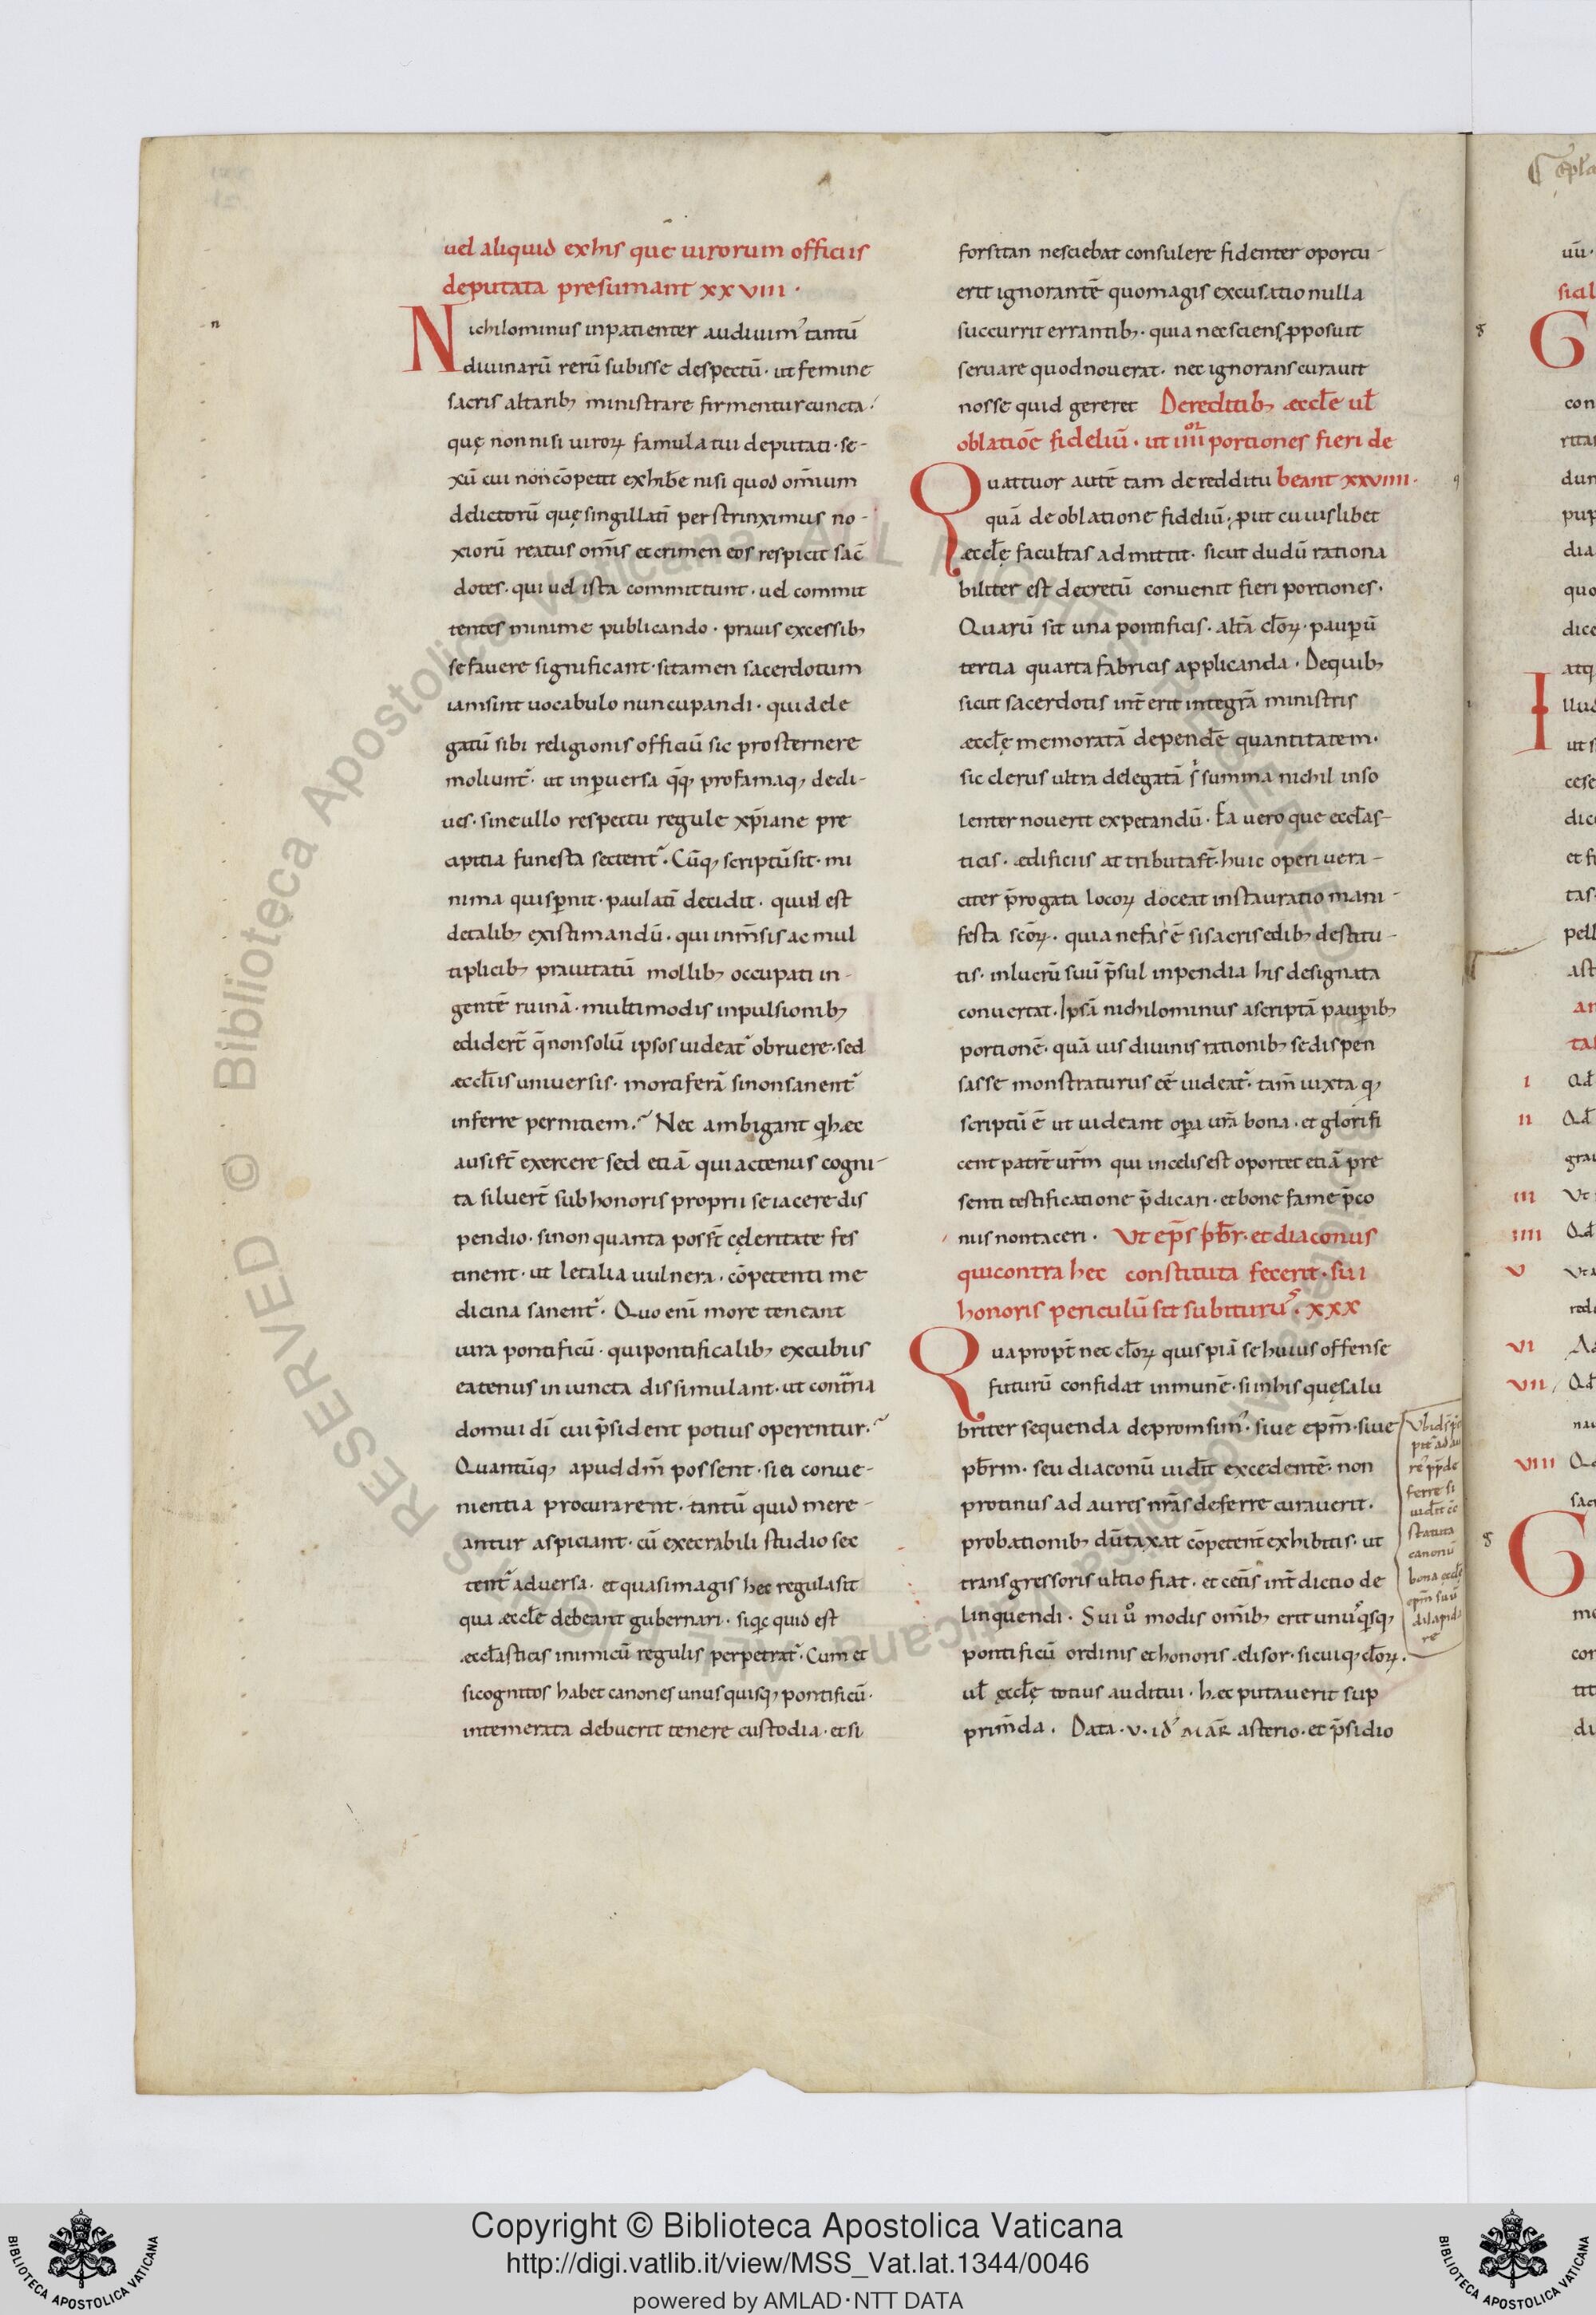 uel aliquid ex his que uirorum officiis
deputata presumant xxviii ·
Nichilominus inpatienter audiuim᷒ tantū
diuinarū rerū subisse despectū · ut femine
sacris altarib; ministrare firmentur cuncta ·
quę non nisi uiroꝝ famulatui deputati · se-
xū cui non cōpetit exhibē nisi quod om̄ium
delictorū quę singillatī perstrinximus no-
xiorū reatus om̄is et crimen eos respicit sac̄
dotes · qui uel ista committunt · uel commit
tentes minime publicando · prauis excessib;
se fauere significant · si tamen sacerdotum
iam sint uocabulo nuncupandi · qui dele
gatū sibi religionis officiū sic prosternere
moliunt᷒ · ut in ꝑuersa q̄q; profamaq; decli-
ues · sine ullo respectu regule xp̄iane pre
cipitia funesta sectent᷒ · Cūq; scriptū sit · mi
nima qui sꝑnit · paulatī decidit · quid est
de talib; existimandū · qui inm̄sis ac mul
tiplicib; prauitatū mollib; occupati in-
gentē ruinā · multimodis inpulsionib;
ediderт̄ q̄ non solū ipsos uideat᷒ obruere · sed
æccl̄iis uniuersis · mortiferā si non sanent᷒
inferre pernitiem · Nec ambigant q̄ hæc
ausi sт̄ exercere sed etiā qui actenus cogni-
ta siluerт̄ sub honoris proprii se iacere dis
pendio · si non quanta possт̄ cęleritate fes
tinent · ut letalia uulnera · cōpetenti me
dicina sanent᷒ · Quo enī more teneant
iura pontificū · qui pontificalib; excubiis
eatenus iniuncta dissimulant · ut contraria
domui dī cui p̄sident potius operentur ·
Quantūq; apud dm̄ possent · si ei conue-
nientia procurarent · tantū quid mere-
antur aspiciant · cū execrabili studio sec
tent᷒ aduersa · et quasi magis hec regula sit
qua æccl̄e debeant gubernari · sic quid est
æccl̄asticis inimicū regulis perpetrat᷒ · Cum et
si cognitos habet canones unusquisq; pontificū ·
intemerata debuerit tenere custodia · et si
forsitan nesciebat consulere fidenter oportu-
erit ignorantē quo magis excusatio nulla
succurrit errantib; · quia nec sciens ꝓposuit
seruare quod nouerat · nec ignorans curauit
nosse quid gereret De redditib; æccl̄e ul̄
oblatiōe fidelium · ut iiii or portiones fieri de
Quattuor autē tam de redditu beant xxviiii ·
quā de oblatione fideliū · ꝓut cuiuslibet
æccl̄ę facultas admittit · sicut dudū rationa
biliter est decretū conuenit fieri portiones ·
Quarū sit una pontificis · altā cl̄oꝝ · pauꝑū
tertia quarta fabricis applicanda · De quib;
sicut sacerdotis int̄ erit integrā ministris
æccl̄ę memoratā dependē quantitatem ·
sic clerus ultra delegatā s᷒ summa nichil inso
lenter nouerit expetandū · Ea uero que eccl̄as-
ticis · ædificiis attributa sт̄ · huic operi uera-
citer p̄rogata locoꝝ doceat instauratio mani-
festa sc̄oꝝ · quia nefas ē si sacris edib; destitu-
tis · in lucrū suū p̄sul inpendia his designata
conuertat · Ipsā nichilominus ascriptā pauꝑib;
portionē · quā uis diuinis rationib; se dispen
sasse monstraturus eē uideat᷒ · tam̄ iuxta q̄
scriptū ē ut uideant oꝑa ur̄a bona · et glorifi
cent patrē ur̄m qui in celis est oportet etiā pre
senti testificatione p̄dicari · et bone fame p̄co
niis non taceri · Ut ep̄s pb̄r · et diaconus
qui contra hec constituta fecerit · sui
honoris periculū sit subituru᷒ · xxx
Quapropт̄ nec cl̄oꝝ quispiā se huius offense
futurū confidat inmunē · si in his quę salu
briter sequenda depromsim᷒ · siue epm̄ · siue
pb̄rm · seu diaconū uid̄it excedentē · non
protinus ad aures nr̄as deferre curauerit ·
probationib; dūtaxat cōpetenт̄ exhibitis · ut
transgressoris ultio fiat · et ceт̄is int̄dictio de
linquendi · Sui u᷒o modis om̄ib; erit unu᷒q̄sq;
pontificū ordinis et honoris elisor · si cuiq; cl̄oꝝ ·
ul̄ ęccl̄ę totius auditui · hæc putauerit sup
prim̄da · Data · v · id᷒ mar̄ asterio · et p̄sidio
ferre si
uid̄it ēē
statuta
canonū
bona eccl̄e
epm̄ suū
dilapida
re